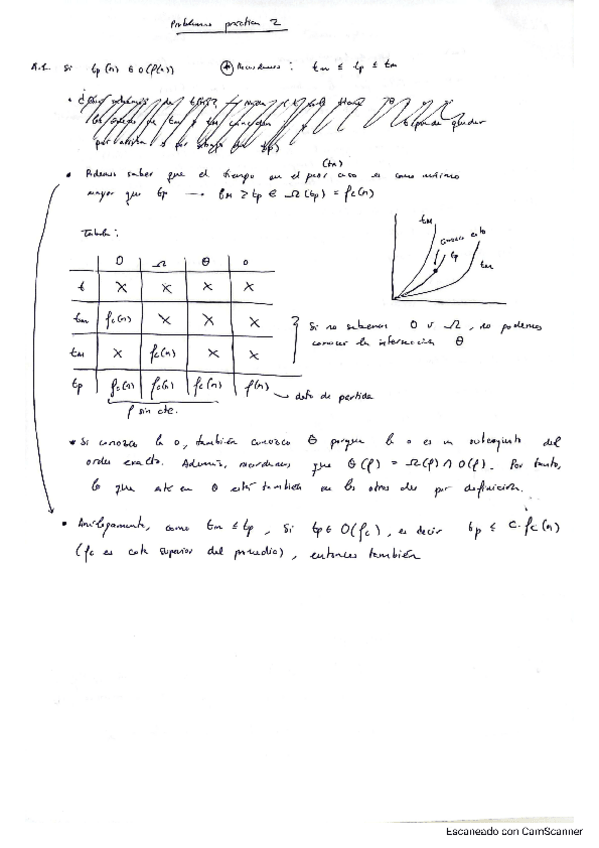 Problemas práctica 2
A.1. Si tp(n) ∈ o(f(n)) ⊕ Recordemos: tm ≤ tp ≤ tM
por arriba o por abajo
• Además saber que el tiempo en el peor caso es como mínimo
(tM)
mayor que tp → tM ≥ tp ∈ Ω(tp) = fc(n)
Tabla:
O Ω Θ o
t X X X X
tm fc(n) X X X
tM X fc(n) X X
tp fc(n) fc(n) fc(n) f(n) → dato de partida
f sin cte.
} Si no sabemos O ó Ω, no podemos
conocer la intersección Θ
tM
Conozco esto
tp
tm
• Si conozco la o, también conozco Θ porque la o es un subconjunto del
orden exacto. Además, recordemos que Θ(f) = Ω(f) ∩ O(f). Por tanto,
lo que esté en Θ está también en los otros dos por definición.
• Análogamente, como tm ≤ tp, si tp ∈ O(fc), es decir tp ≤ c·fc(n)
(fc es cota superior del promedio), entonces también
Escaneado con CamScanner